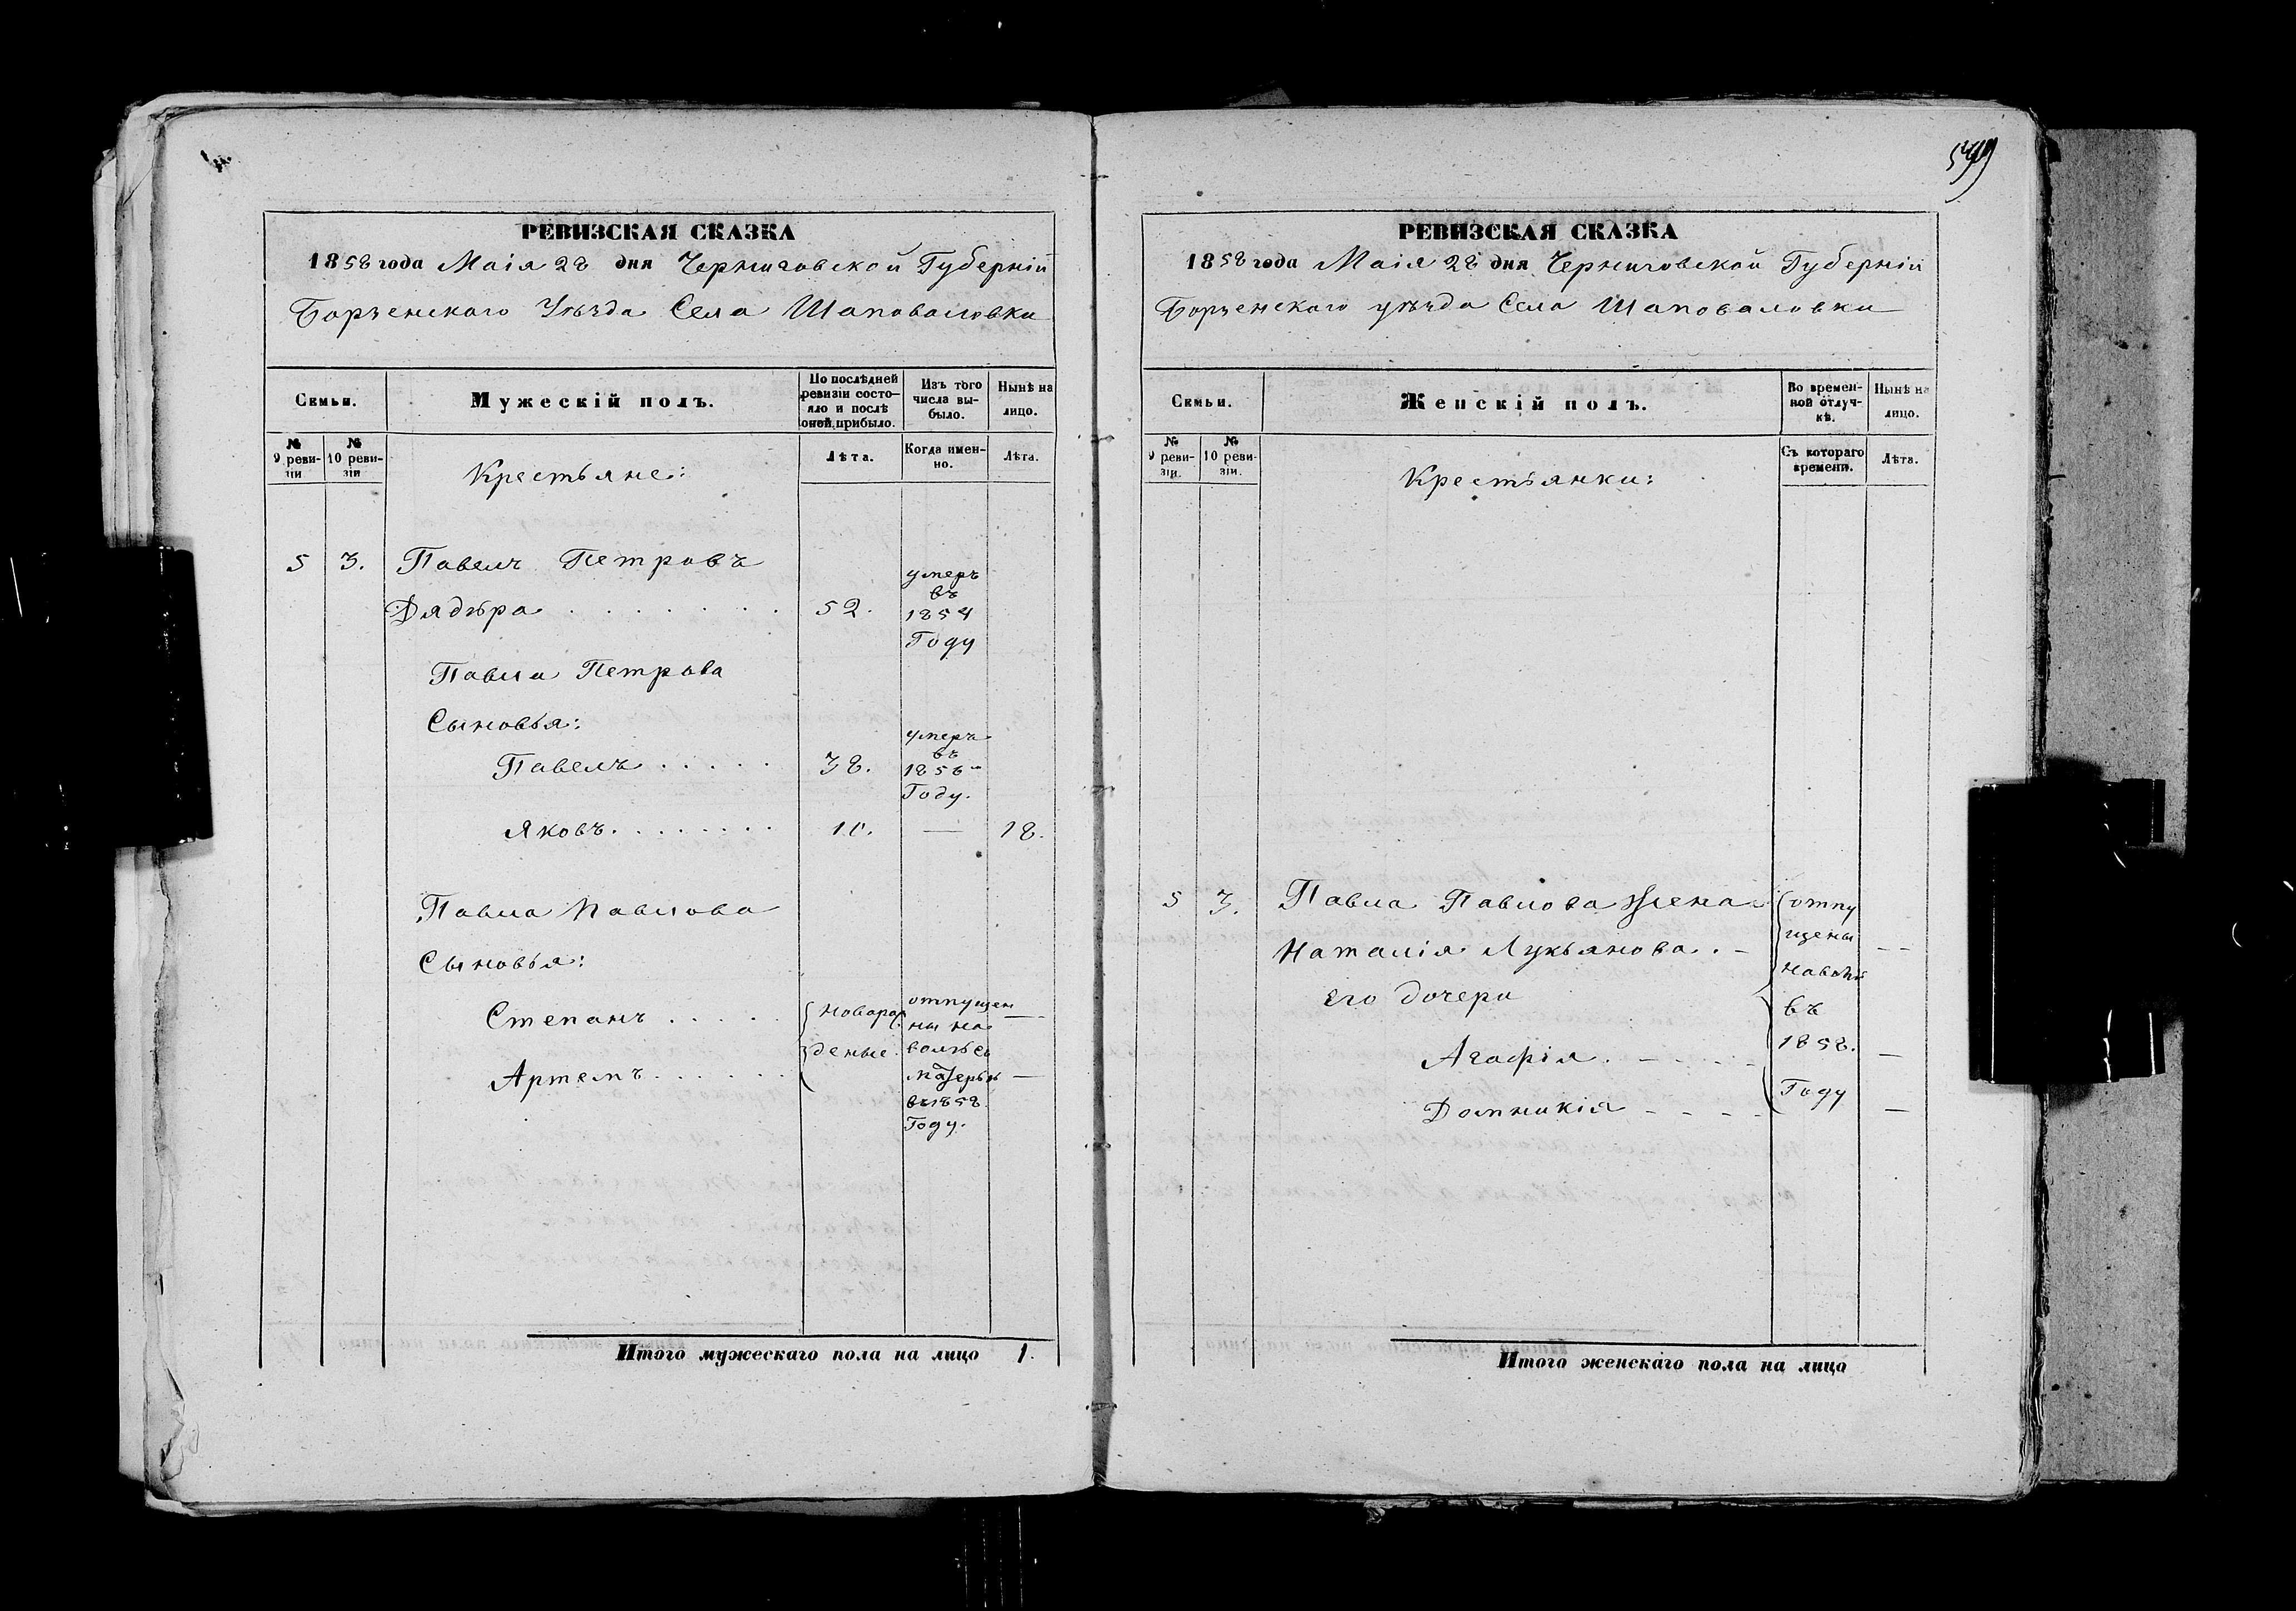 РЕВИЗСКАЯ СКАЗКА
1858 года Маія 28 дня Черниговской Губерніи
Борзенскаго Уѣзда Села Шаповаловки
Семьи.
Мужескій полъ.
По послѣдней ревизіи состояло и послѣ оной прибыло.
Изъ того числа выбыло.
Нынѣ на лицо.
№ 9 ревизіи
№ 10 ревизіи
Крестьяне:
Лѣта.
Когда именно.
Лѣта.
5 3. Павелъ Петровъ
Дядѣра 52. умеръ въ 1854 Году
Павла Петрова
Сыновья:
Павелъ 38. умеръ въ 1856 Году.
Яковъ 10. — 18.
Павла Павлова
Сыновья:
Степанъ
Артемъ
новорожденые
отпущенны на волю съ матерью въ 1858 Году.
Итого мужескаго пола на лицо 1.
599
РЕВИЗСКАЯ СКАЗКА
1858 года Маія 28 дня Черниговской Губерніи
Борзенскаго уѣзда Села Шаповаловки
Семьи.
Женскій полъ.
Во временной отлучкѣ.
Нынѣ на лицо.
№ 9 ревизіи.
№ 10 ревизіи.
Крестьянки:
Съ котораго времени.
Лѣта.
5 3. Павла Павлова Жена
Наталія Лукьянова
Его дочери
Агафія
Домникія
отпущены
въ
1858.
Году
Итого женскаго пола на лицо